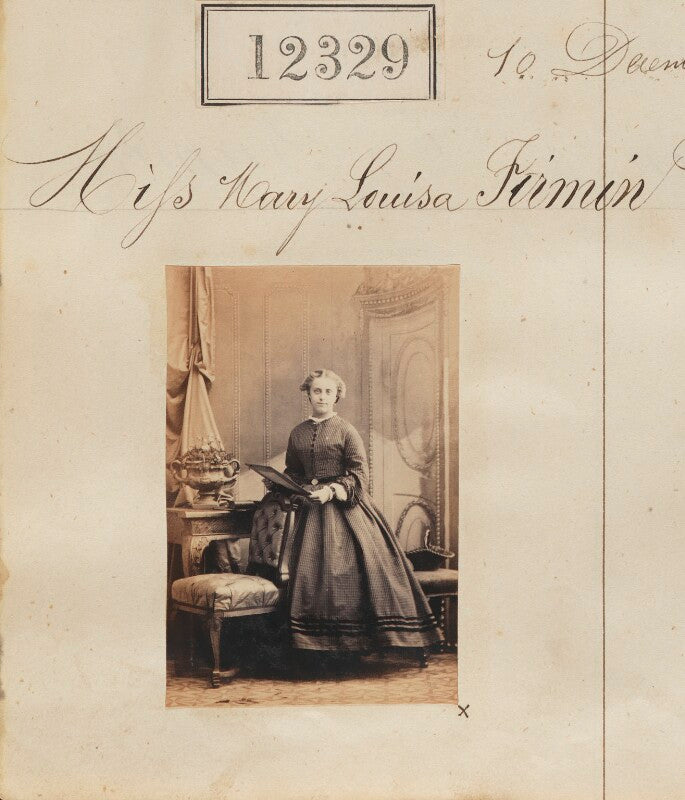 12329
10 Decem
Miss Mary Louisa Firmin
x